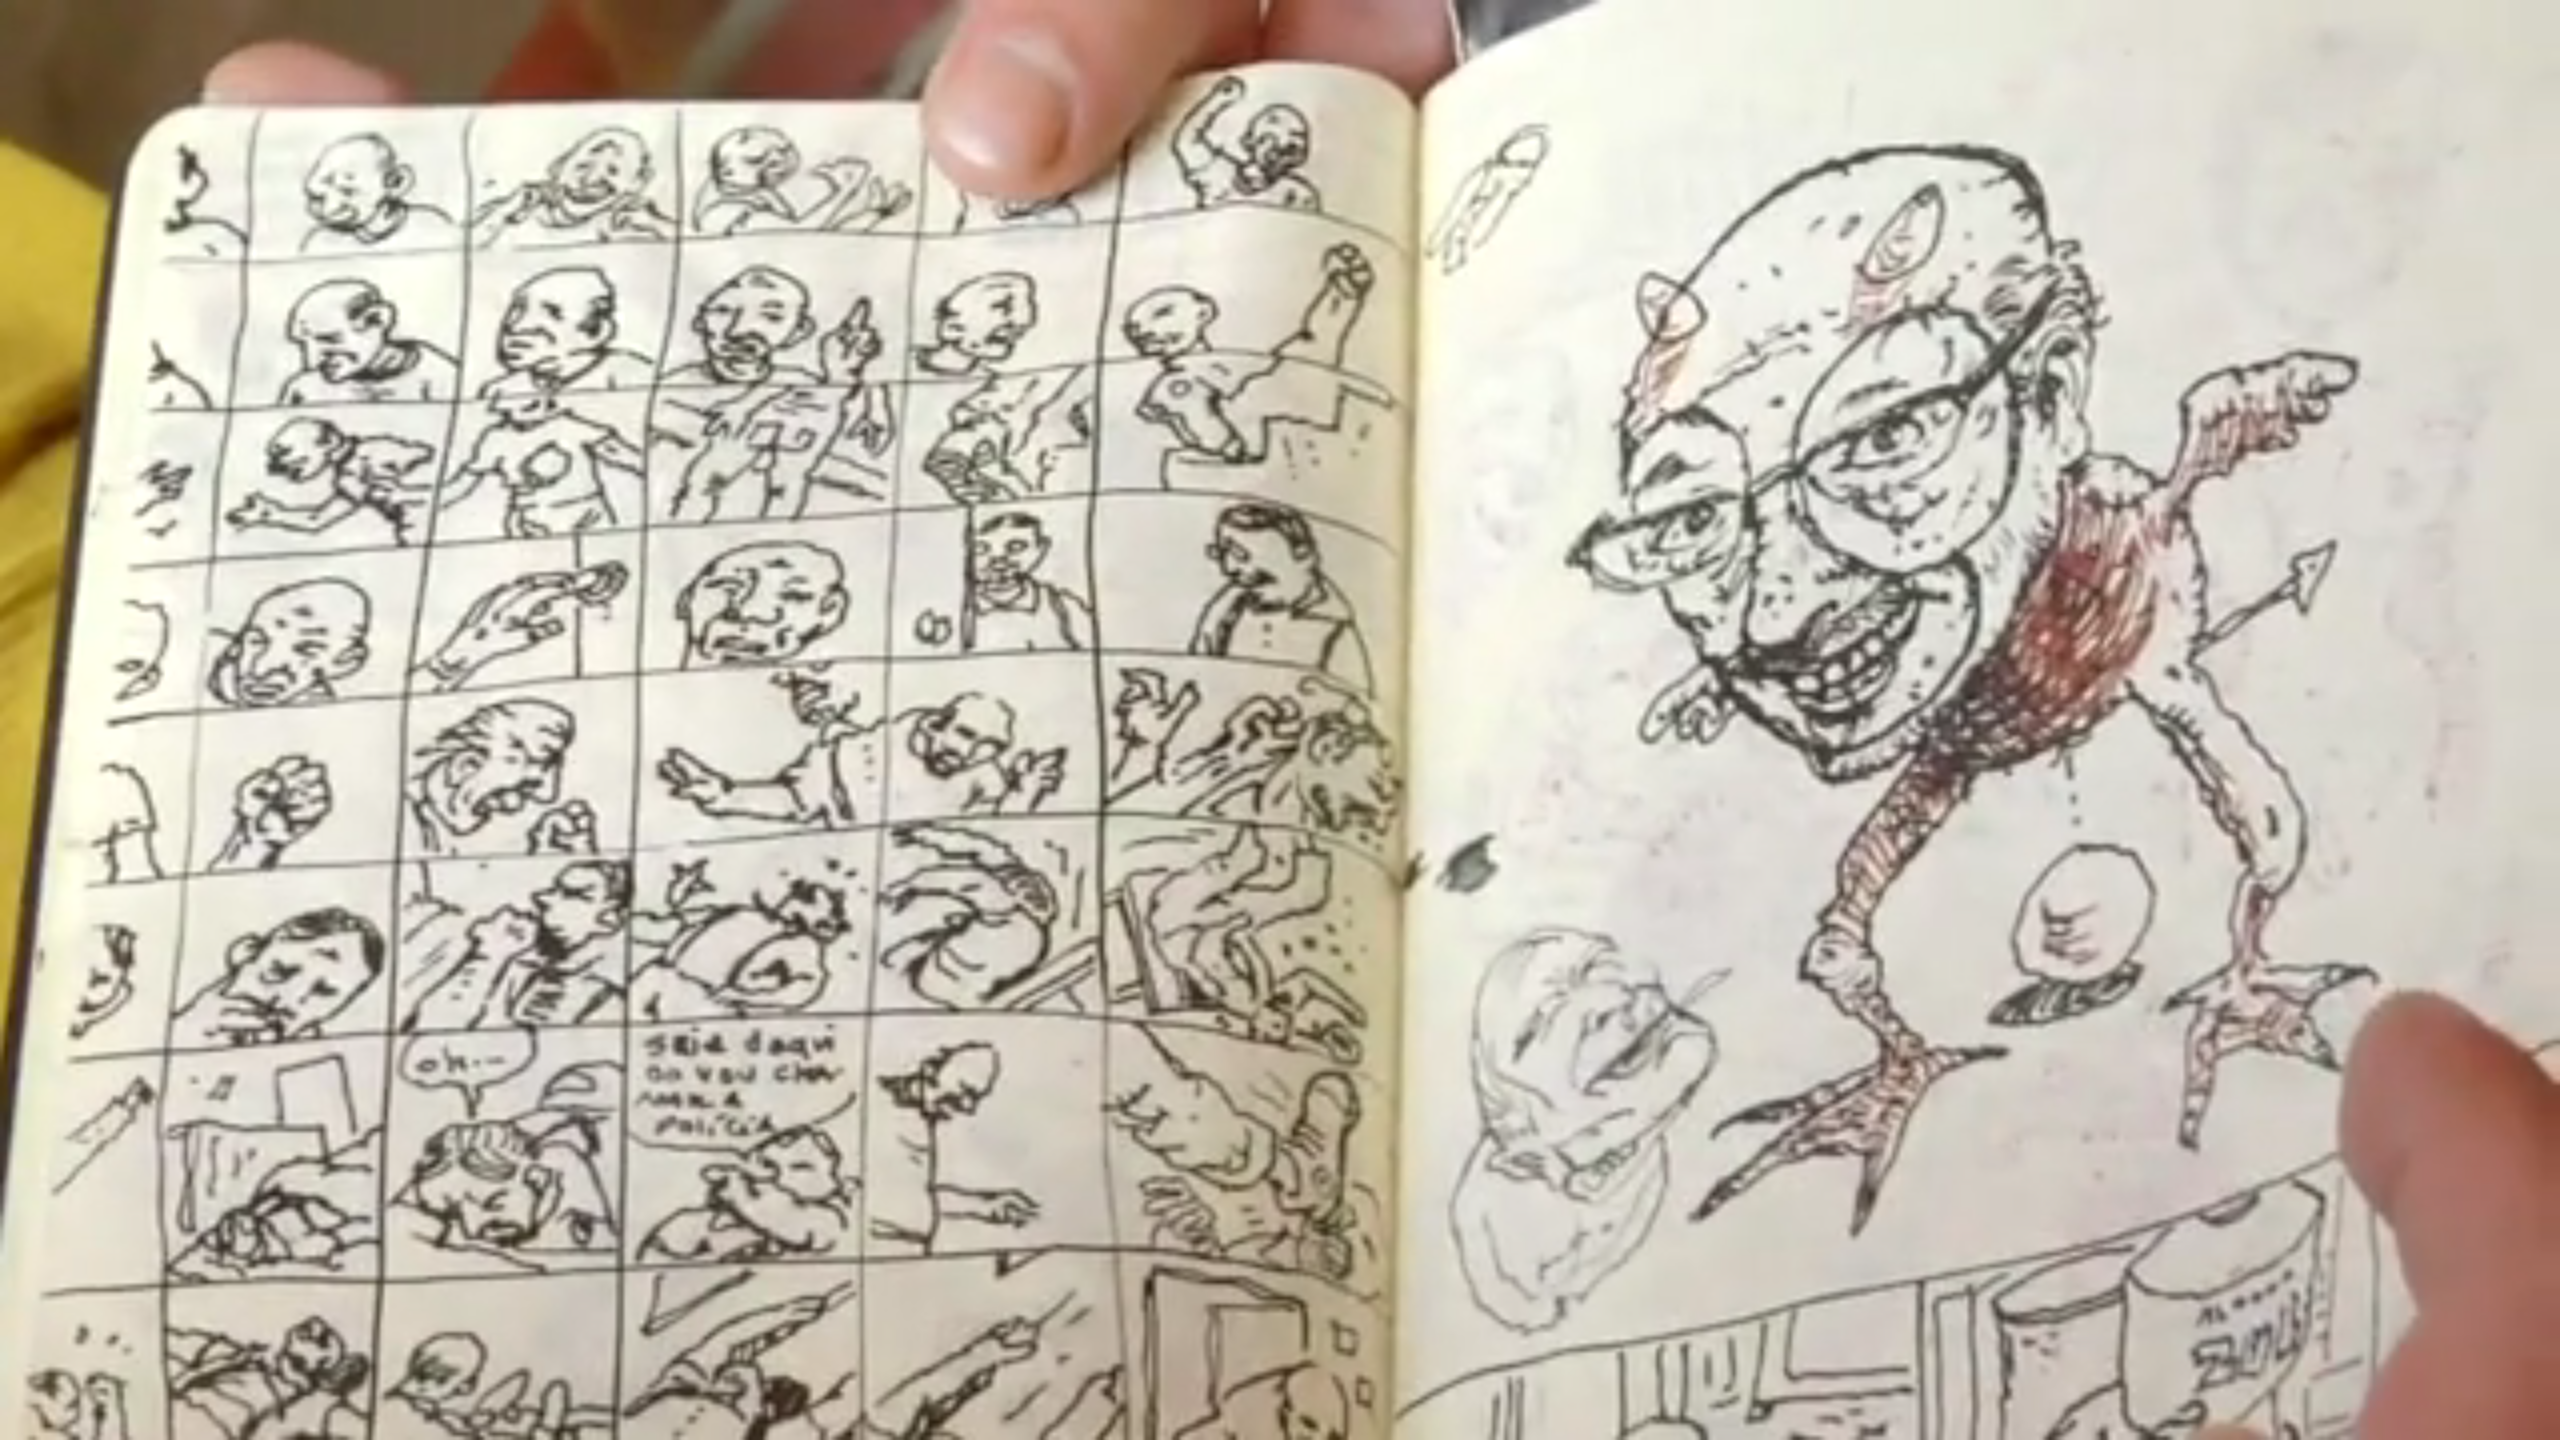 oh...
saia daqui
ou vou cha
mar a
polícia